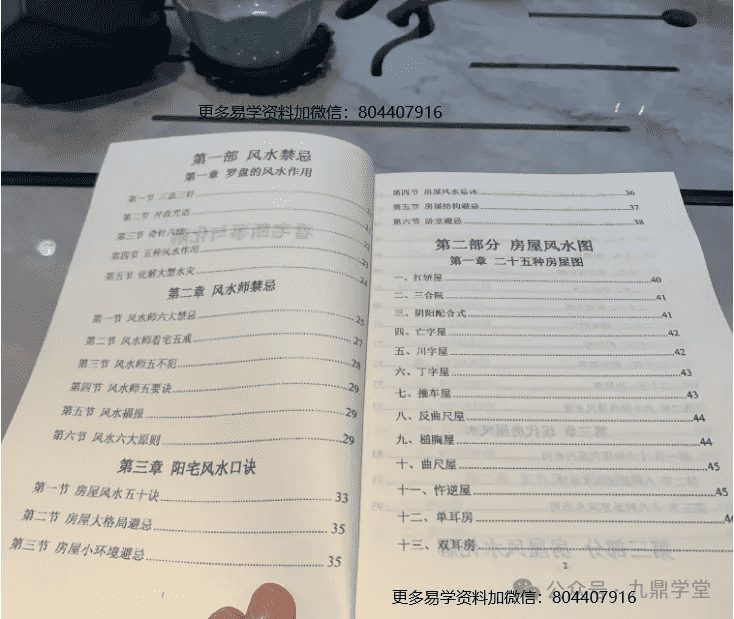 更多易学资料加微信：804407916
第一部 风水禁忌
第一章 罗盘的风水作用
第一节 三盘三针
第二节 开盘咒语
第三节 奇针八法
第四节 五种风水作用 23
第五节 化解大型水灾 24
第二章 风水师禁忌
第一节 风水师六大禁忌 25
第二节 风水师看宅五戒 27
第三节 风水师五不犯 28
第四节 风水师五要诀 29
第五节 风水福报 29
第六节 风水六大原则 29
第三章 阳宅风水口诀
第一节 房屋风水五十诀 33
第二节 房屋大格局避忌 35
第三节 房屋小环境避忌 35
1
第四节 房屋风水忌讳 36
第五节 房屋结构避忌 37
第六节 卧室避忌 38
第二部分 房屋风水图
第一章 二十五种房屋图
一、扛轿屋 40
二、三合院 41
三、阴阳配合式 41
四、亡字屋 42
五、川字屋 42
六、丁字屋 43
七、推车屋 43
八、反曲尺屋 44
九、槌胸屋 44
十、曲尺屋 45
十一、忤逆屋 45
十二、单耳房
十三、双耳房
2
公众号·九鼎学堂
更多易学资料加微信：804407916